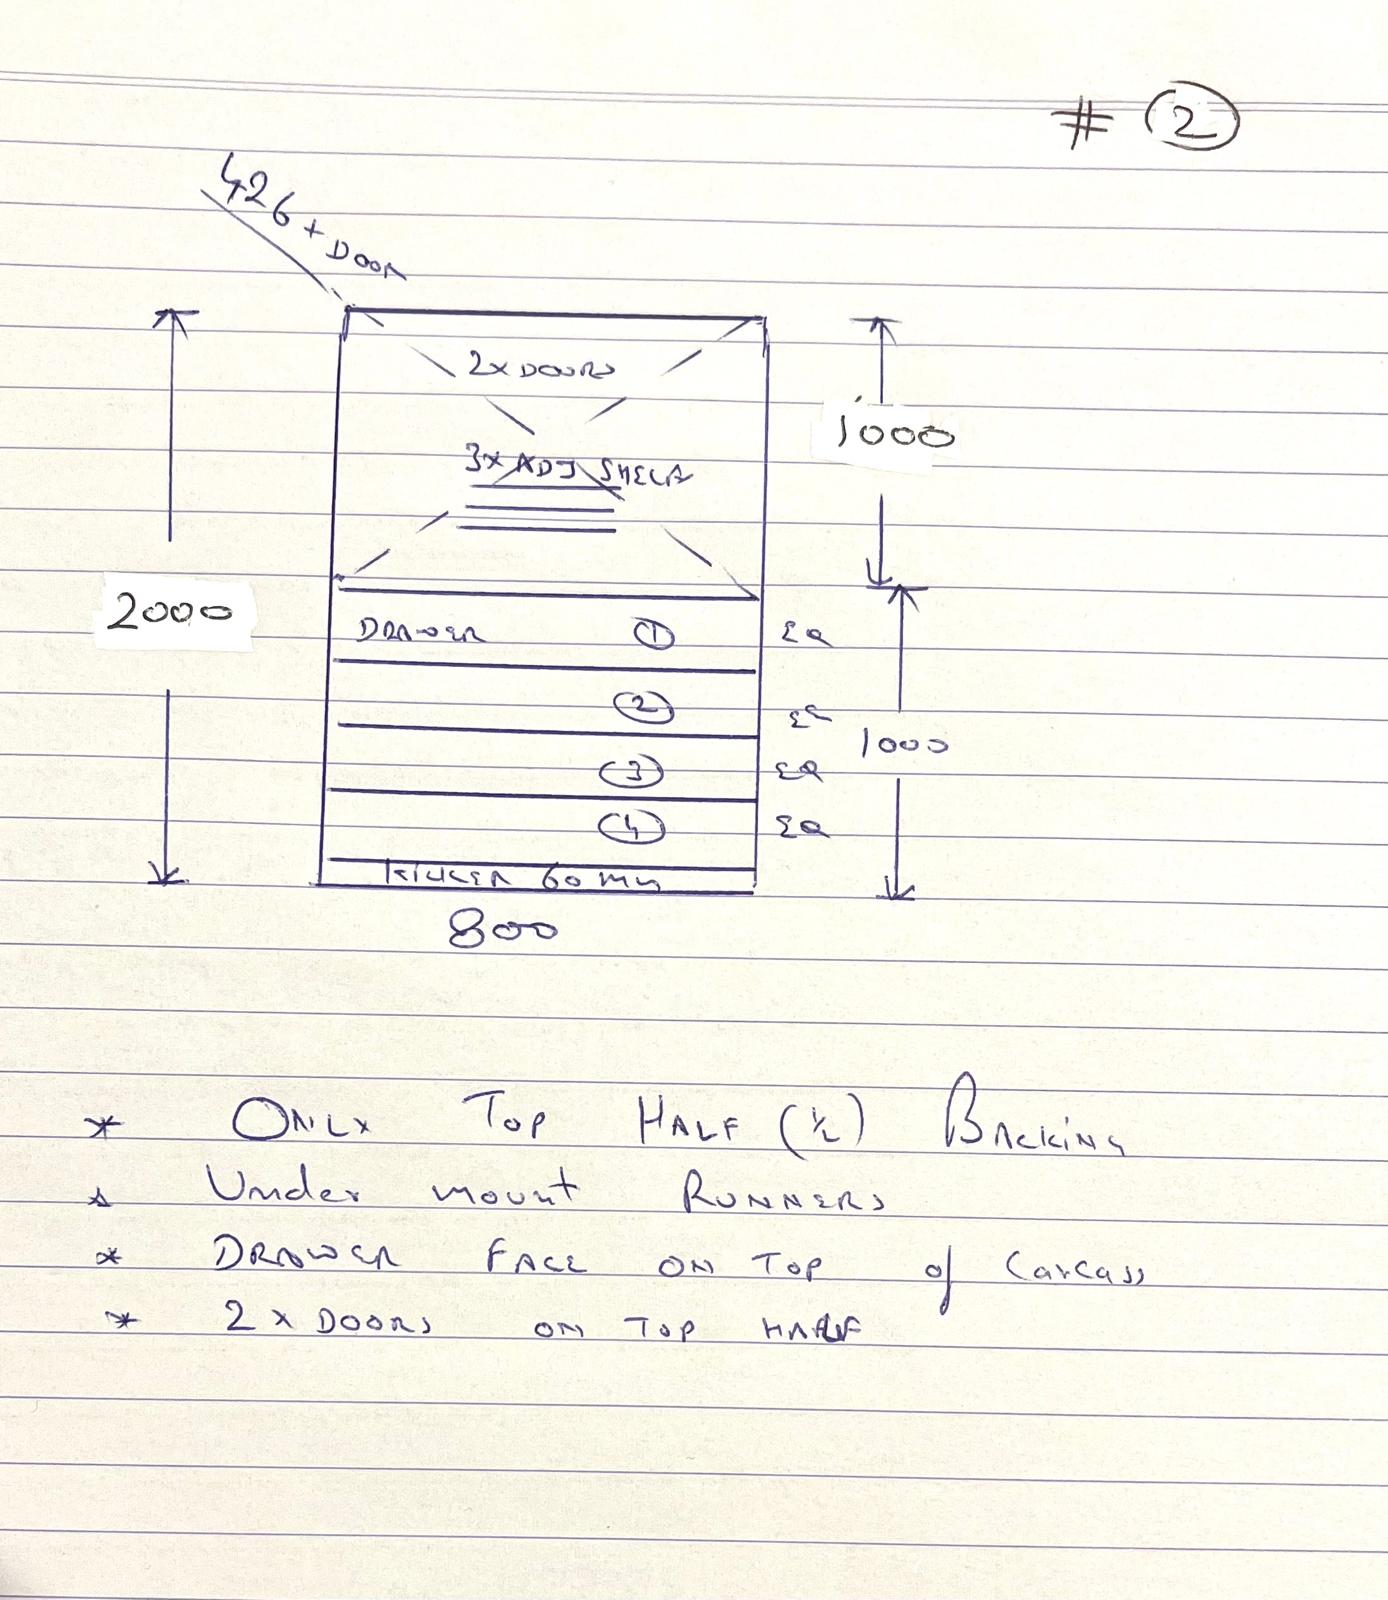 # 2
426 + DOOR
2x DOORS
1000
3x ADJ SHELF
2000
DRAWER 1 EQ
2 EQ
1000
3 EQ
4 EQ
KICKER 60 mm
800
* ONLY TOP HALF (1/2) BACKING
* Under mount RUNNERS
* DRAWER FACE ON TOP of Carcass
* 2 x DOORS ON TOP HALF